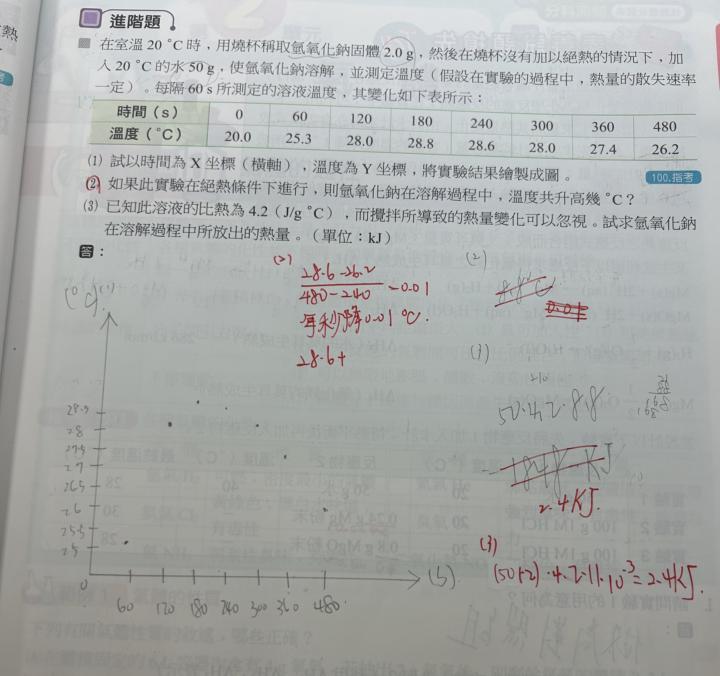 進階題
在室溫 20 °C 時，用燒杯稱取氫氧化鈉固體 2.0 g，然後在燒杯沒有加以絕熱的情況下，加
入 20 °C 的水 50 g，使氫氧化鈉溶解，並測定溫度（假設在實驗的過程中，熱量的散失速率
一定）。每隔 60 s 所測定的溶液溫度，其變化如下表所示：
時間（s） 0 60 120 180 240 300 360 480
溫度（°C） 20.0 25.3 28.0 28.8 28.6 28.0 27.4 26.2
(1) 試以時間為 X 坐標（橫軸），溫度為 Y 坐標，將實驗結果繪製成圖。
100.指考
(2) 如果此實驗在絕熱條件下進行，則氫氧化鈉在溶解過程中，溫度共升高幾 °C？
(3) 已知此溶液的比熱為 4.2（J/g °C），而攪拌所導致的熱量變化可以忽視。試求氫氧化鈉
在溶解過程中所放出的熱量。（單位：kJ）
答：
(2)
28.6-26.2
480-240
=0.01
每秒降0.01°C.
28.6+
(2)
8.8°C
0.01
(3)
210
50·4.2·8.8
1848 KJ
2.4KJ.
(3)
(50+2)·4.2·11·10⁻³=2.4KJ.
(°C)
28.5
28
27.5
27
26.5
26
25.5
25
0
60 120 180 240 300 360 480
(S)